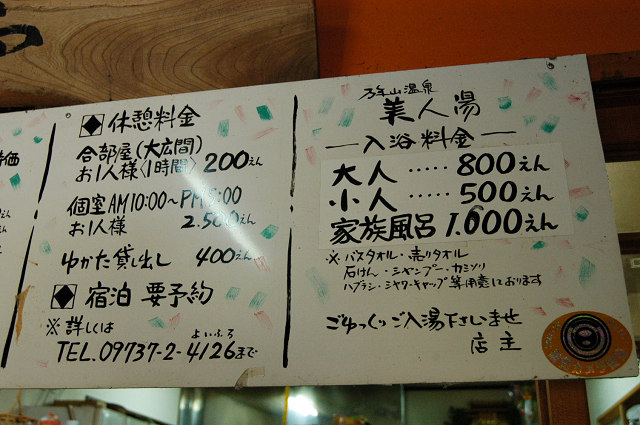 休憩料金
合部屋(大広間)
お1人様〈1時間〉200えん
個室AM10:00~PM5:00
お1人様 2.500えん
ゆかた貸し出し 400えん
宿泊 要予約
※詳しくは よいふろ
TEL.09737-2-4126まで
万年山温泉
美人湯
―入浴料金―
大人 ‥‥‥ 800えん
小人 ‥‥‥ 500えん
家族風呂 1.600えん
※バスタオル・売りタオル
石けん・シャンプー・カミソリ
ハブラシ・シャワーキャップ等用意しております
ごゆっくりご入湯下さいませ
店主